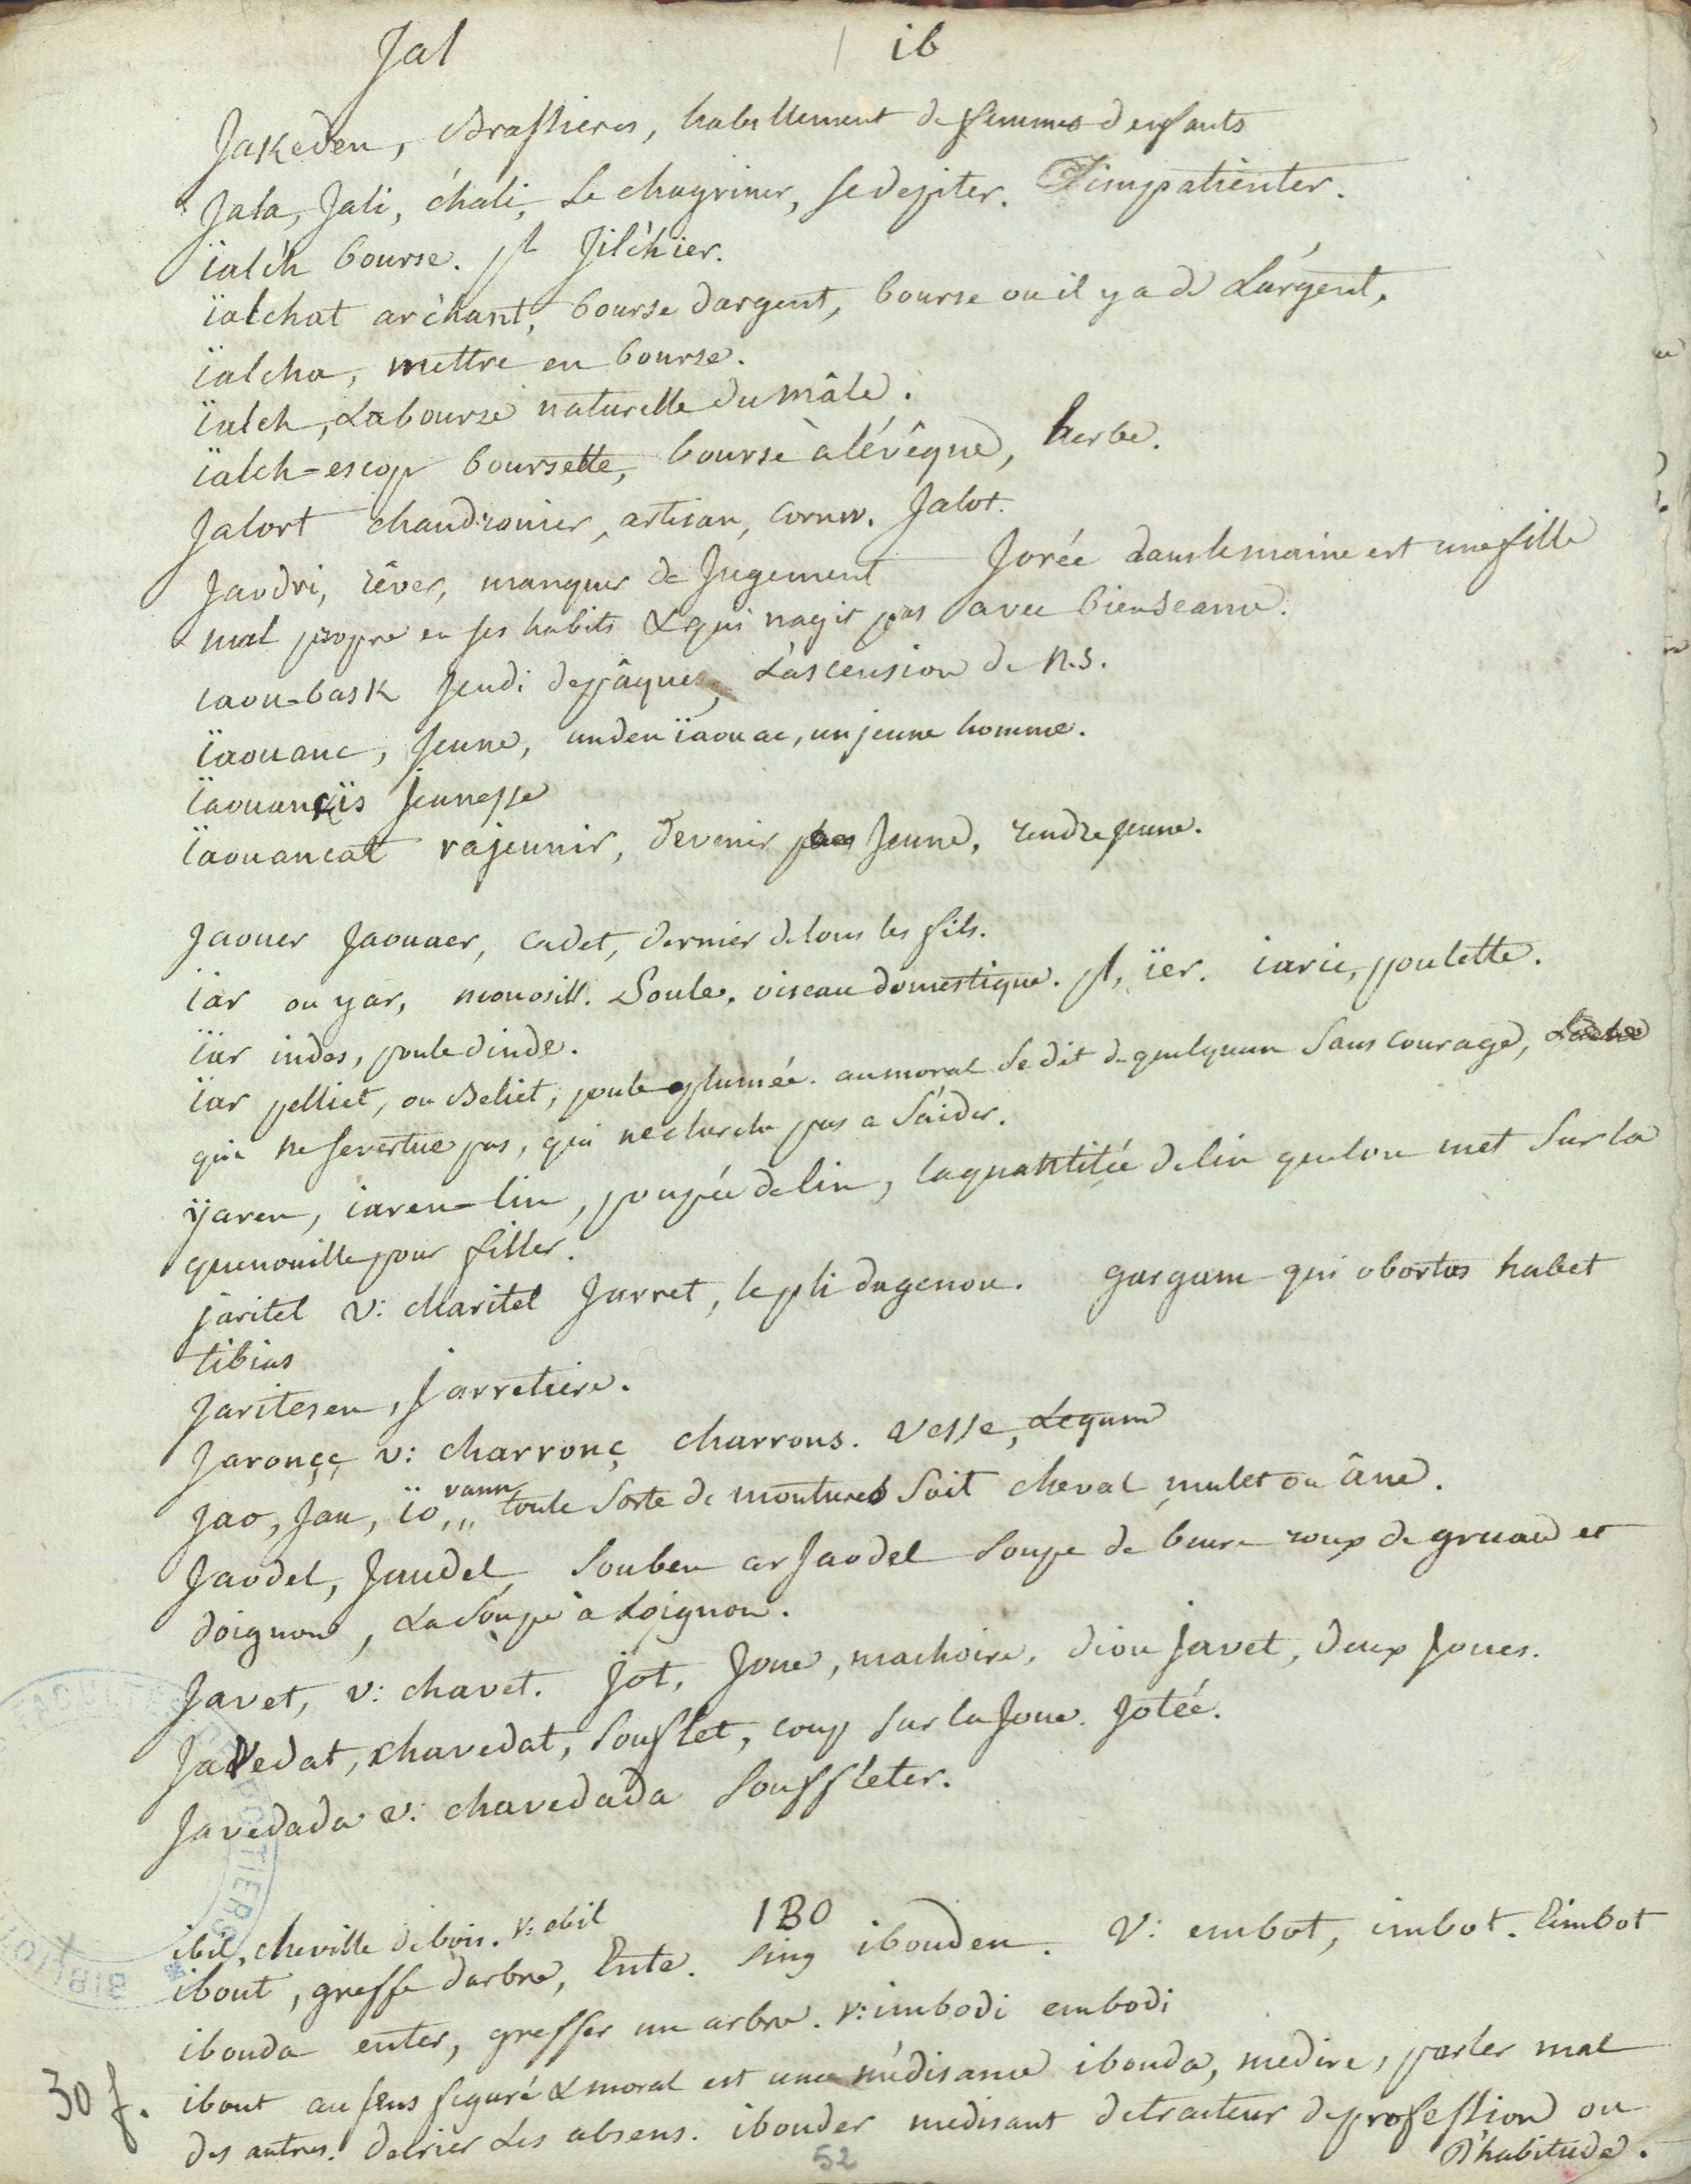 Jal ib
Jakeden, Brassieres, habillement de femmes d'enfants
Jala, Jali, c'hali, se chagriner, se depiter. S'impatienter.
ïalc'h bourse. pl Jilc'hier.
ïalchat arc'hant, bourse dargent, bourse ou il y a de L'argent,
ïalcha, mettre en bourse.
ïalch, La bourse naturelle du mâle.
ïalch=escop boursette, bourse à lévêque, herbe.
Jalort chaudronier, artisan, cornw. Jalot.
Jaodri, rêver, manquer de Jugement Jorée dans le maine est une fille
mal propre en ses habits & qui nagit pas avec bienseance.
iaou-bask Jeudi de pâques, L'ascension de N.S.
ïaouanc, Jeune, un den ïaouac, un jeune homme.
ïaouancïis Jeunesse
ïaouancat rajeunir, devenir Jeune, rendre Jeune.
Jaouer Jaouaer, cadet, dernier de tous les fils.
ïar ou yar, monosill. Poule, oiseau domestique. pl, ïer. iaric, poulette.
ïar indes, poule dinde.
ïar pelliet, ou Beliet, poule plumée. au moral se dit de quelquun sans courage,
qui ne severtue pas, qui necherche pas a s'aider.
ÿaren, iaren-lin, poupée de lin, la quantitée de lin que lon met sur la
quenouille pour filler.
jaritel v: charitel Jarret, le pli du genou. gargam qui obortos habet
tibias
Jaritesen, jarretiere.
Jaronçç v: charronç charrons. vesse, Legume
Jao, Jau, ïo,,, vann toute sorte de montures soit cheval mulet ou âne.
Jaodel, Jaudel, Souben ar Jaodel soupe de beure roux de gruau et
doignon, La soupe à Loignon.
Javet, v: chavet. jot, Joue, machoire. diou javet, deux Joues.
Javedat, chavedat, Souflet, coup sur la Joue. Jotéé.
Javedada v: chavedada Souffleter.
IBO
ibil, cheville de bois. v: ebil
ibout, greffe darbre, Ente. sing ibouden. V: embot, imbot. limbot
ibouda enter, greffer un arbre. v: imbodi embodi
ibout au sens figuré & moral est une médisance ibouda, medire, parler mal
des autres. derrier Les absens. ibouder medisant detracteur de profession ou
D'habitude.
30 f.
52
FACULTÉS DE POITIERS
BIBLIO